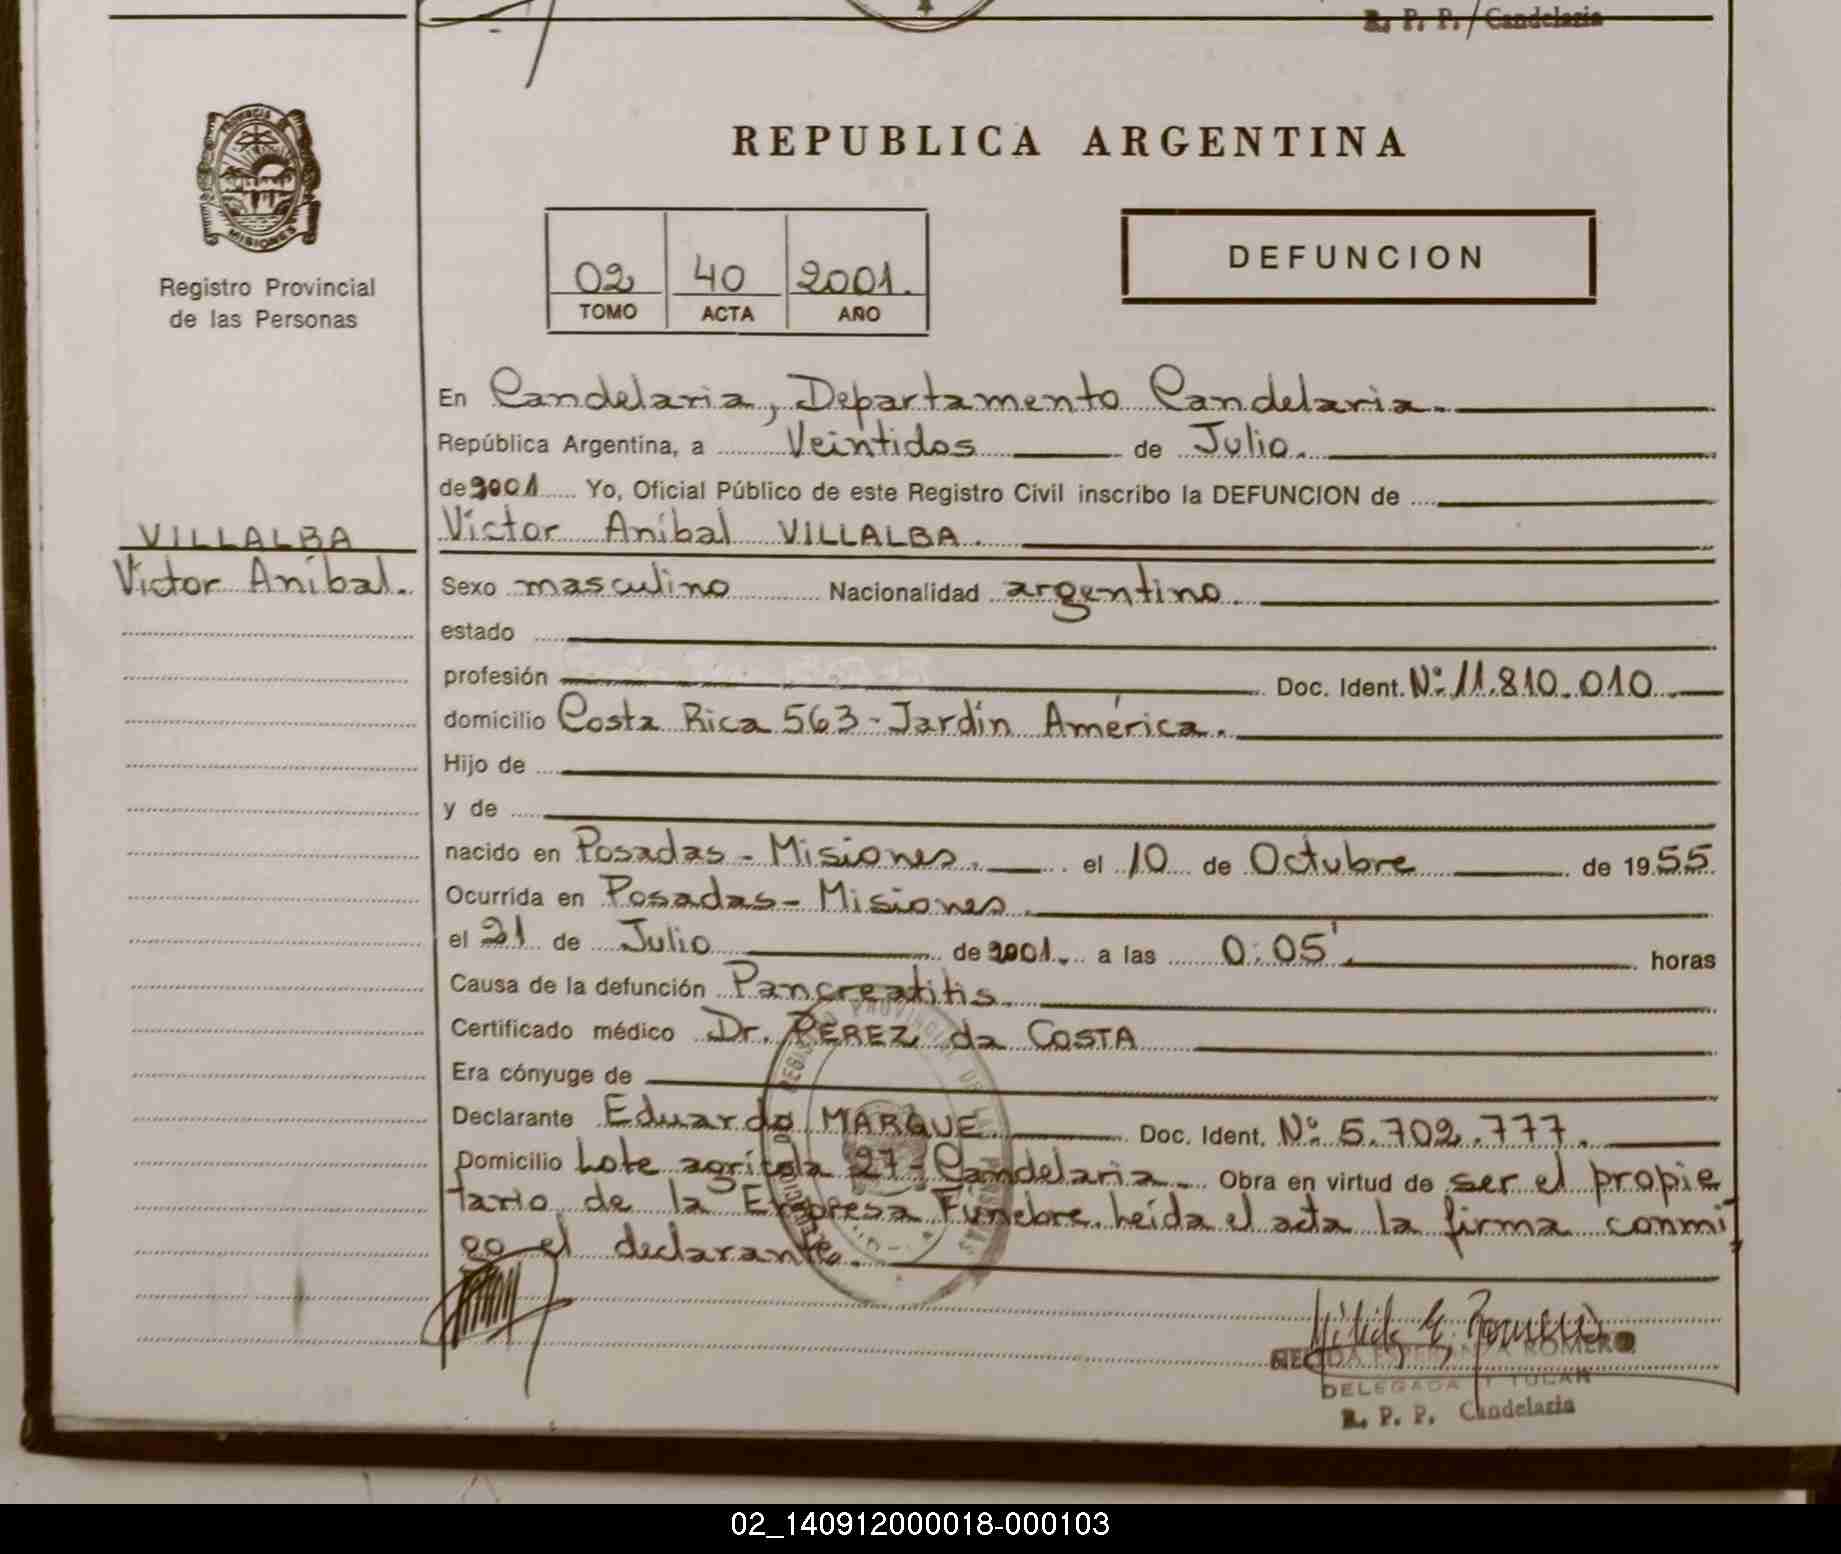 R. P. P. Candelaria
PROVINCIA DE
MISIONES
Registro Provincial
de las Personas
REPUBLICA ARGENTINA
02 40 2001.
TOMO ACTA AÑO
DEFUNCION
En Candelaria, Departamento Candelaria.
República Argentina, a Veintidos de Julio.
de 2001 Yo, Oficial Público de este Registro Civil inscribo la DEFUNCION de
VILLALBA
Victor Aníbal.
Víctor Aníbal VILLALBA.
Sexo masculino Nacionalidad argentino.
estado
profesión Doc. Ident. Nº 11.810.010.
domicilio Costa Rica 563 - Jardín América.
Hijo de
y de
nacido en Posadas - Misiones. el 10 de Octubre de 1955.
Ocurrida en Posadas - Misiones.
el 21 de Julio de 2001. a las 0:05'. horas
Causa de la defunción Pancreatitis.
Certificado médico Dr. PEREZ da COSTA
Era cónyuge de
Declarante Eduardo MARQUE Doc. Ident. Nº 5.702.777.
Domicilio Lote agrícola 27 - Candelaria. Obra en virtud de ser el propie
tario de la Empresa Fúnebre. heída el acta la firma conmi
go el declarante.
ROMERO
DELEGADA TITULAR
R. P. P. Candelaria
02_140912000018-000103